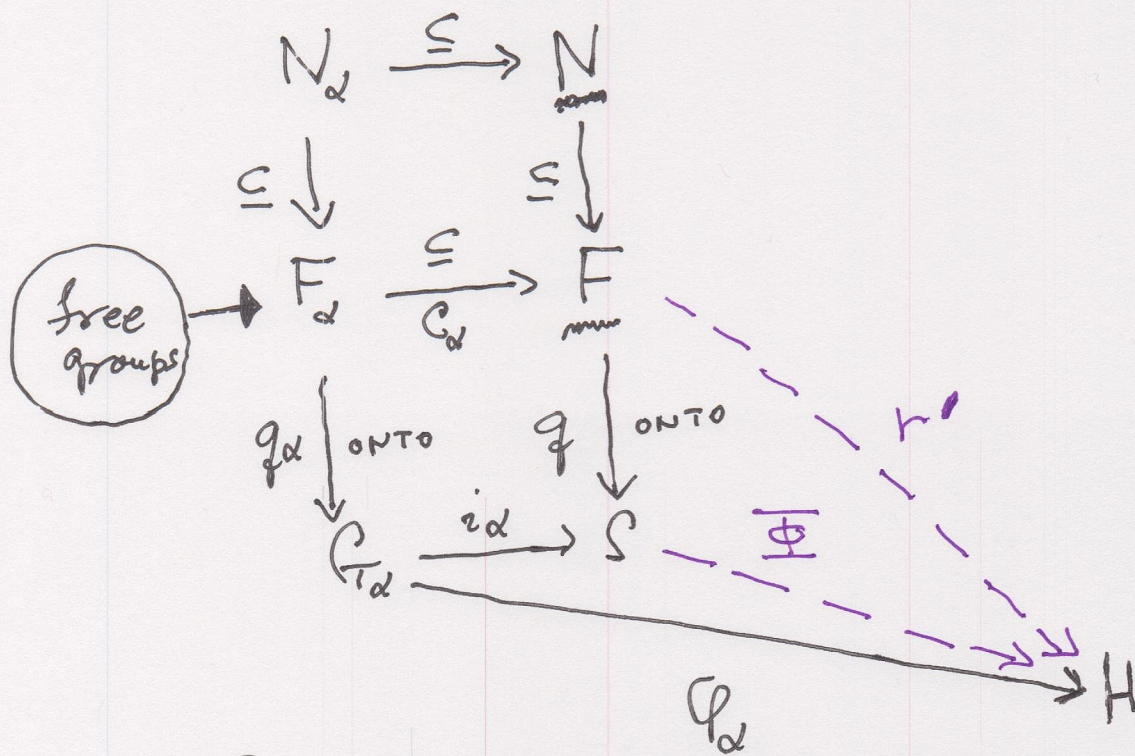 N_α ⊆ N
⊆ ⊆
free groups F_α ⊆ C_α F
q_α ONTO q ONTO r
G_α i_α S Φ
φ_α H